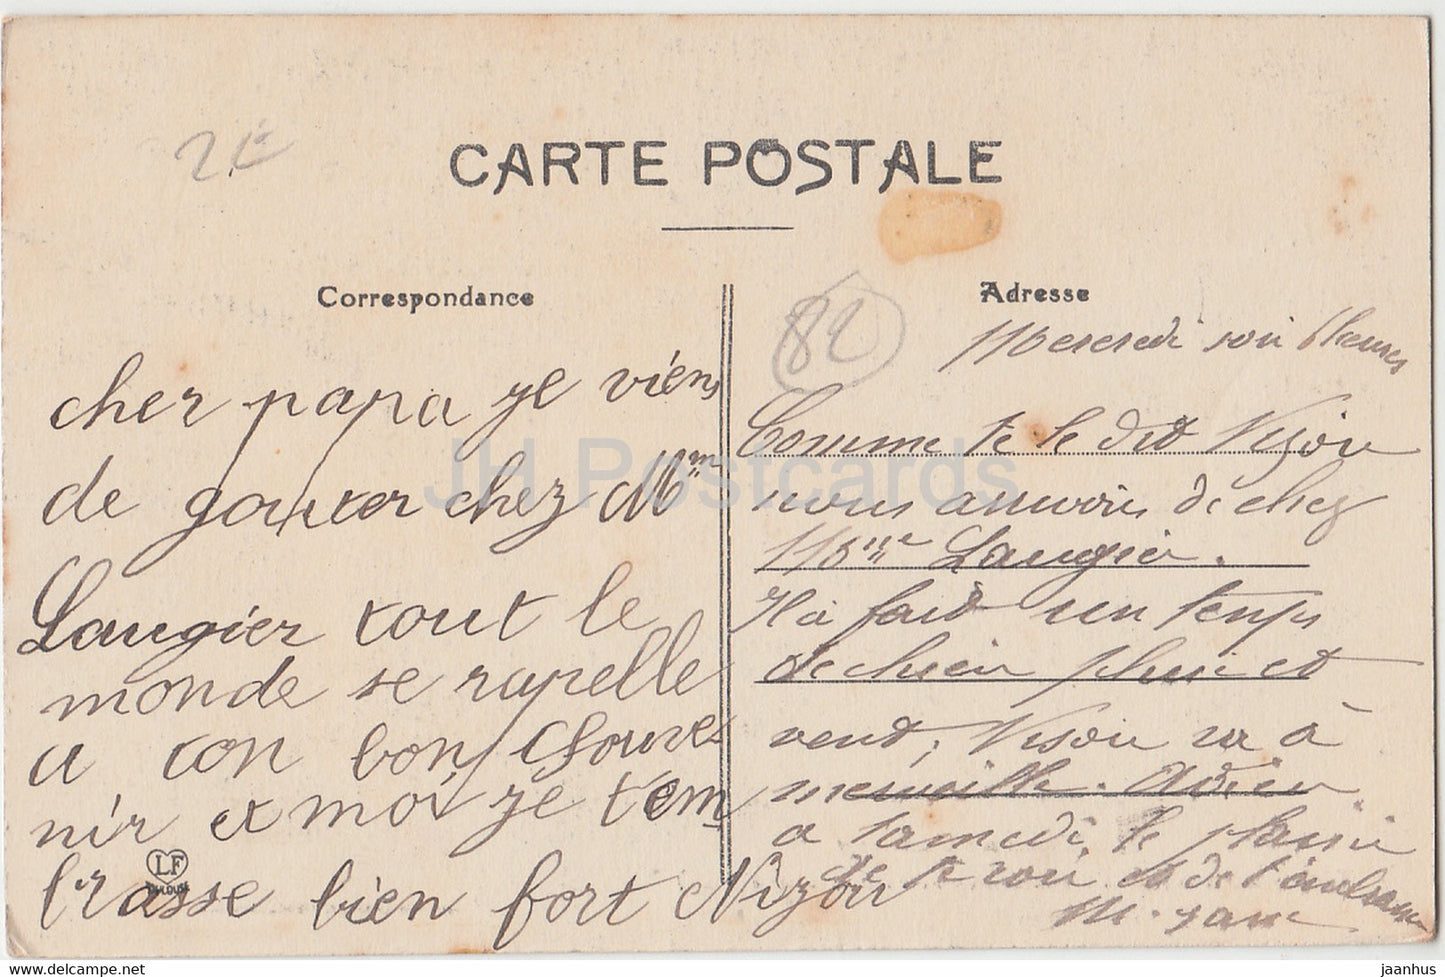 2 €
CARTE POSTALE
Correspondance
Adresse
82
cher papa je viens
de gouter chez Mm
Laugier tout le
monde se rapelle
a ton bon souve
nir et moi je tem
brasse bien fort Nizou
LF
TOULOUSE
Mercredi soir 6 heures
Comme te le dit Nizou
nous arrivons de chez
Mme Laugier.
Il a fait un temps
de chien pluie et
vent, Nizou va à
merveille. Adieu
a samedi, le plaisir
de te voir et de t'embrasser
JH Postcards
delcampe.net
jaanhus